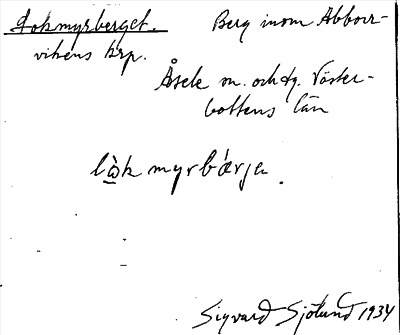 Lokmyrberget. Berg inom Abborr-
vikens krp.
Åsele sn. och tg. Väster-
bottens län
lo̠k myrbærjə.
Sigvard Sjölund 1934